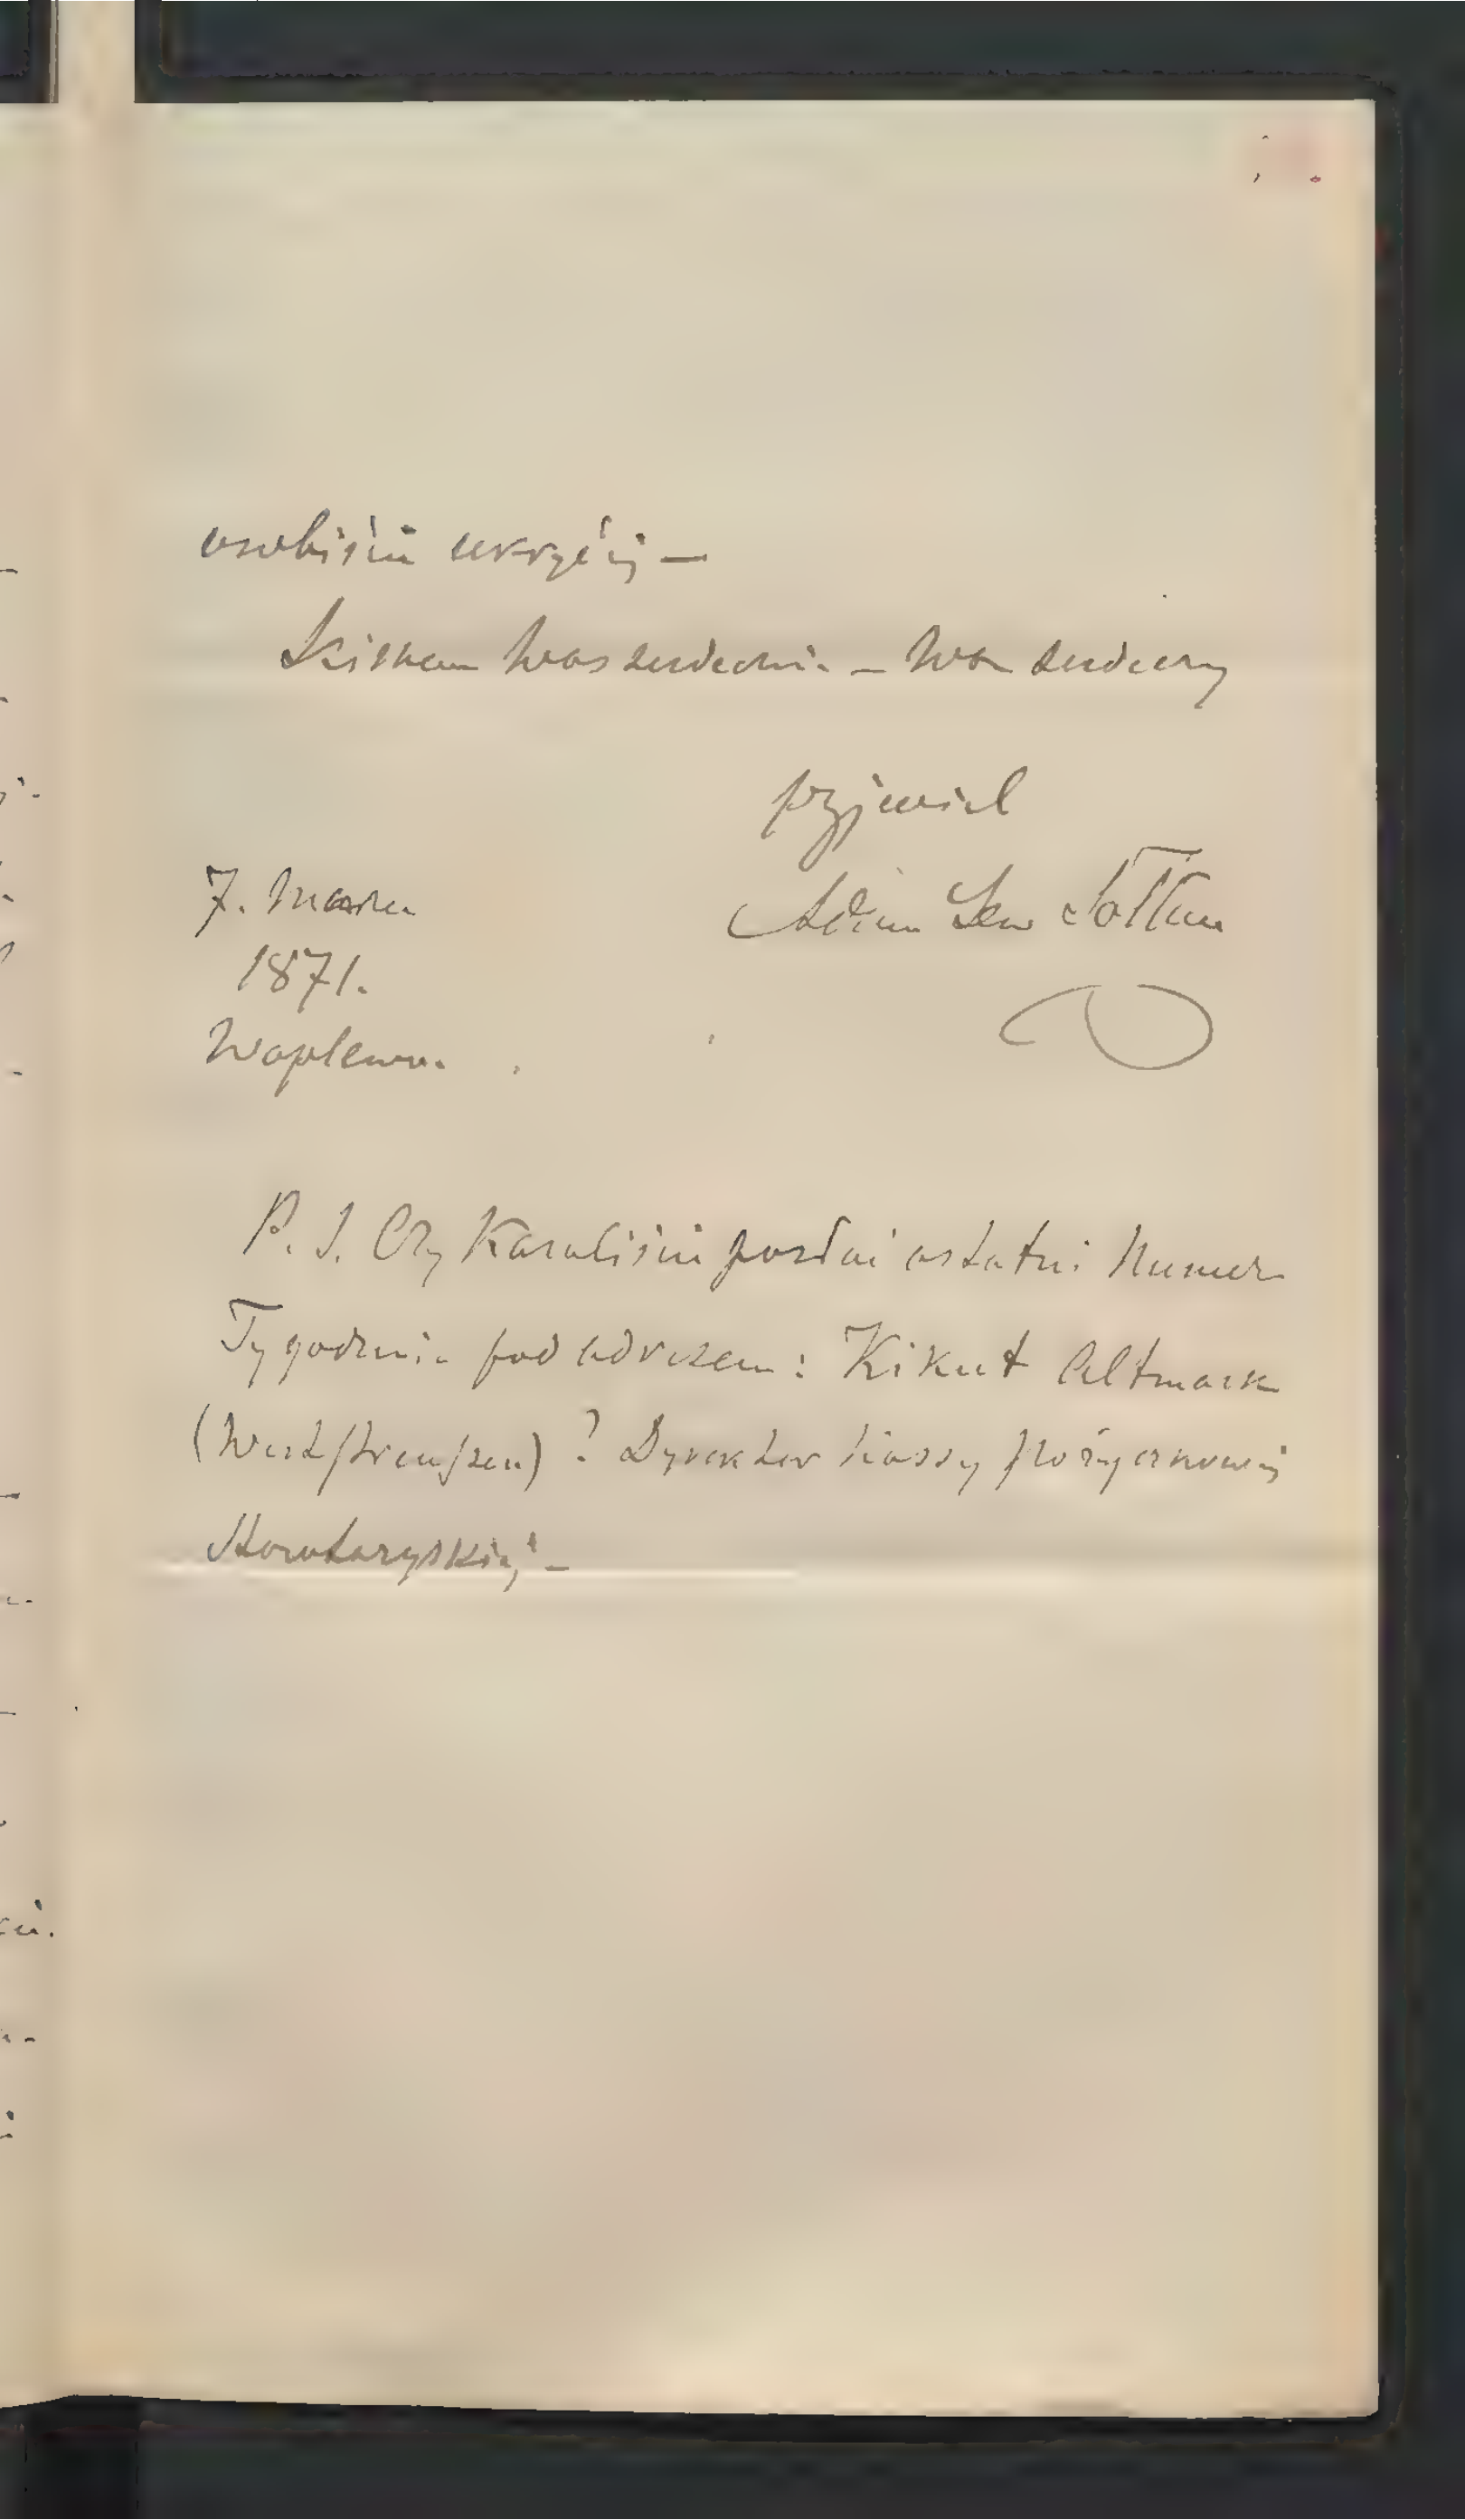 osobiście wkrzyć się –
Ściskam Was serdecznie – Wasz serdeczny
przyjaciel
7. Marca
Adam Lew Sołtan
1871.
Waplewo.
P. S. Czy Kazaliście posłać ostatni Numer
Tygodnia pod adresem: Kikut Altmark
(Westpreussen)? Dyrektor kassy pożyczkowéj
Stowarzyskiéj –